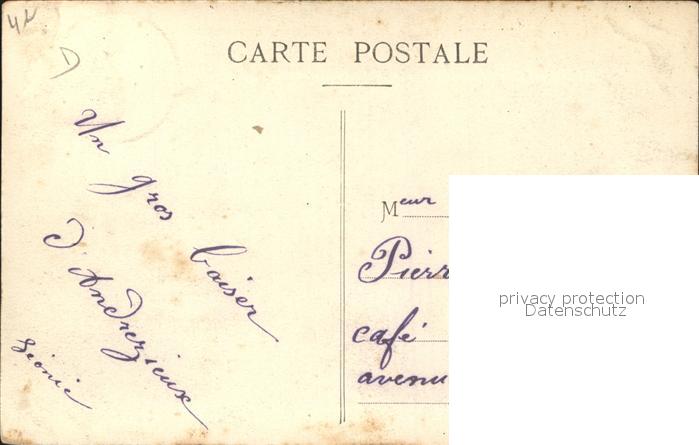 42
CARTE POSTALE
Un gros baiser
d'Andrézieux
Léonie
Meur
Pierr
café
avenu
privacy protection
Datenschutz